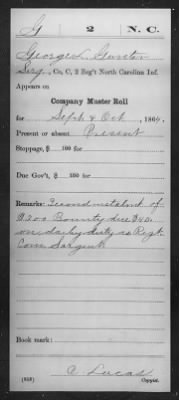 G | 2 | N. C.
George L. Gunter
Serg., Co. C, 2 Reg't North Carolina Inf.
Appears on
Company Muster Roll
for Sept & Oct, 1864.
Present or absent Present
Stoppage, $ 100 for
Due Gov't, $ 100 for
Remarks: Second instalmt of
$200 Bounty due $40.
on daily duty as Regt
Com Sargent
Book mark:
C Lucas
(858) Copyist.